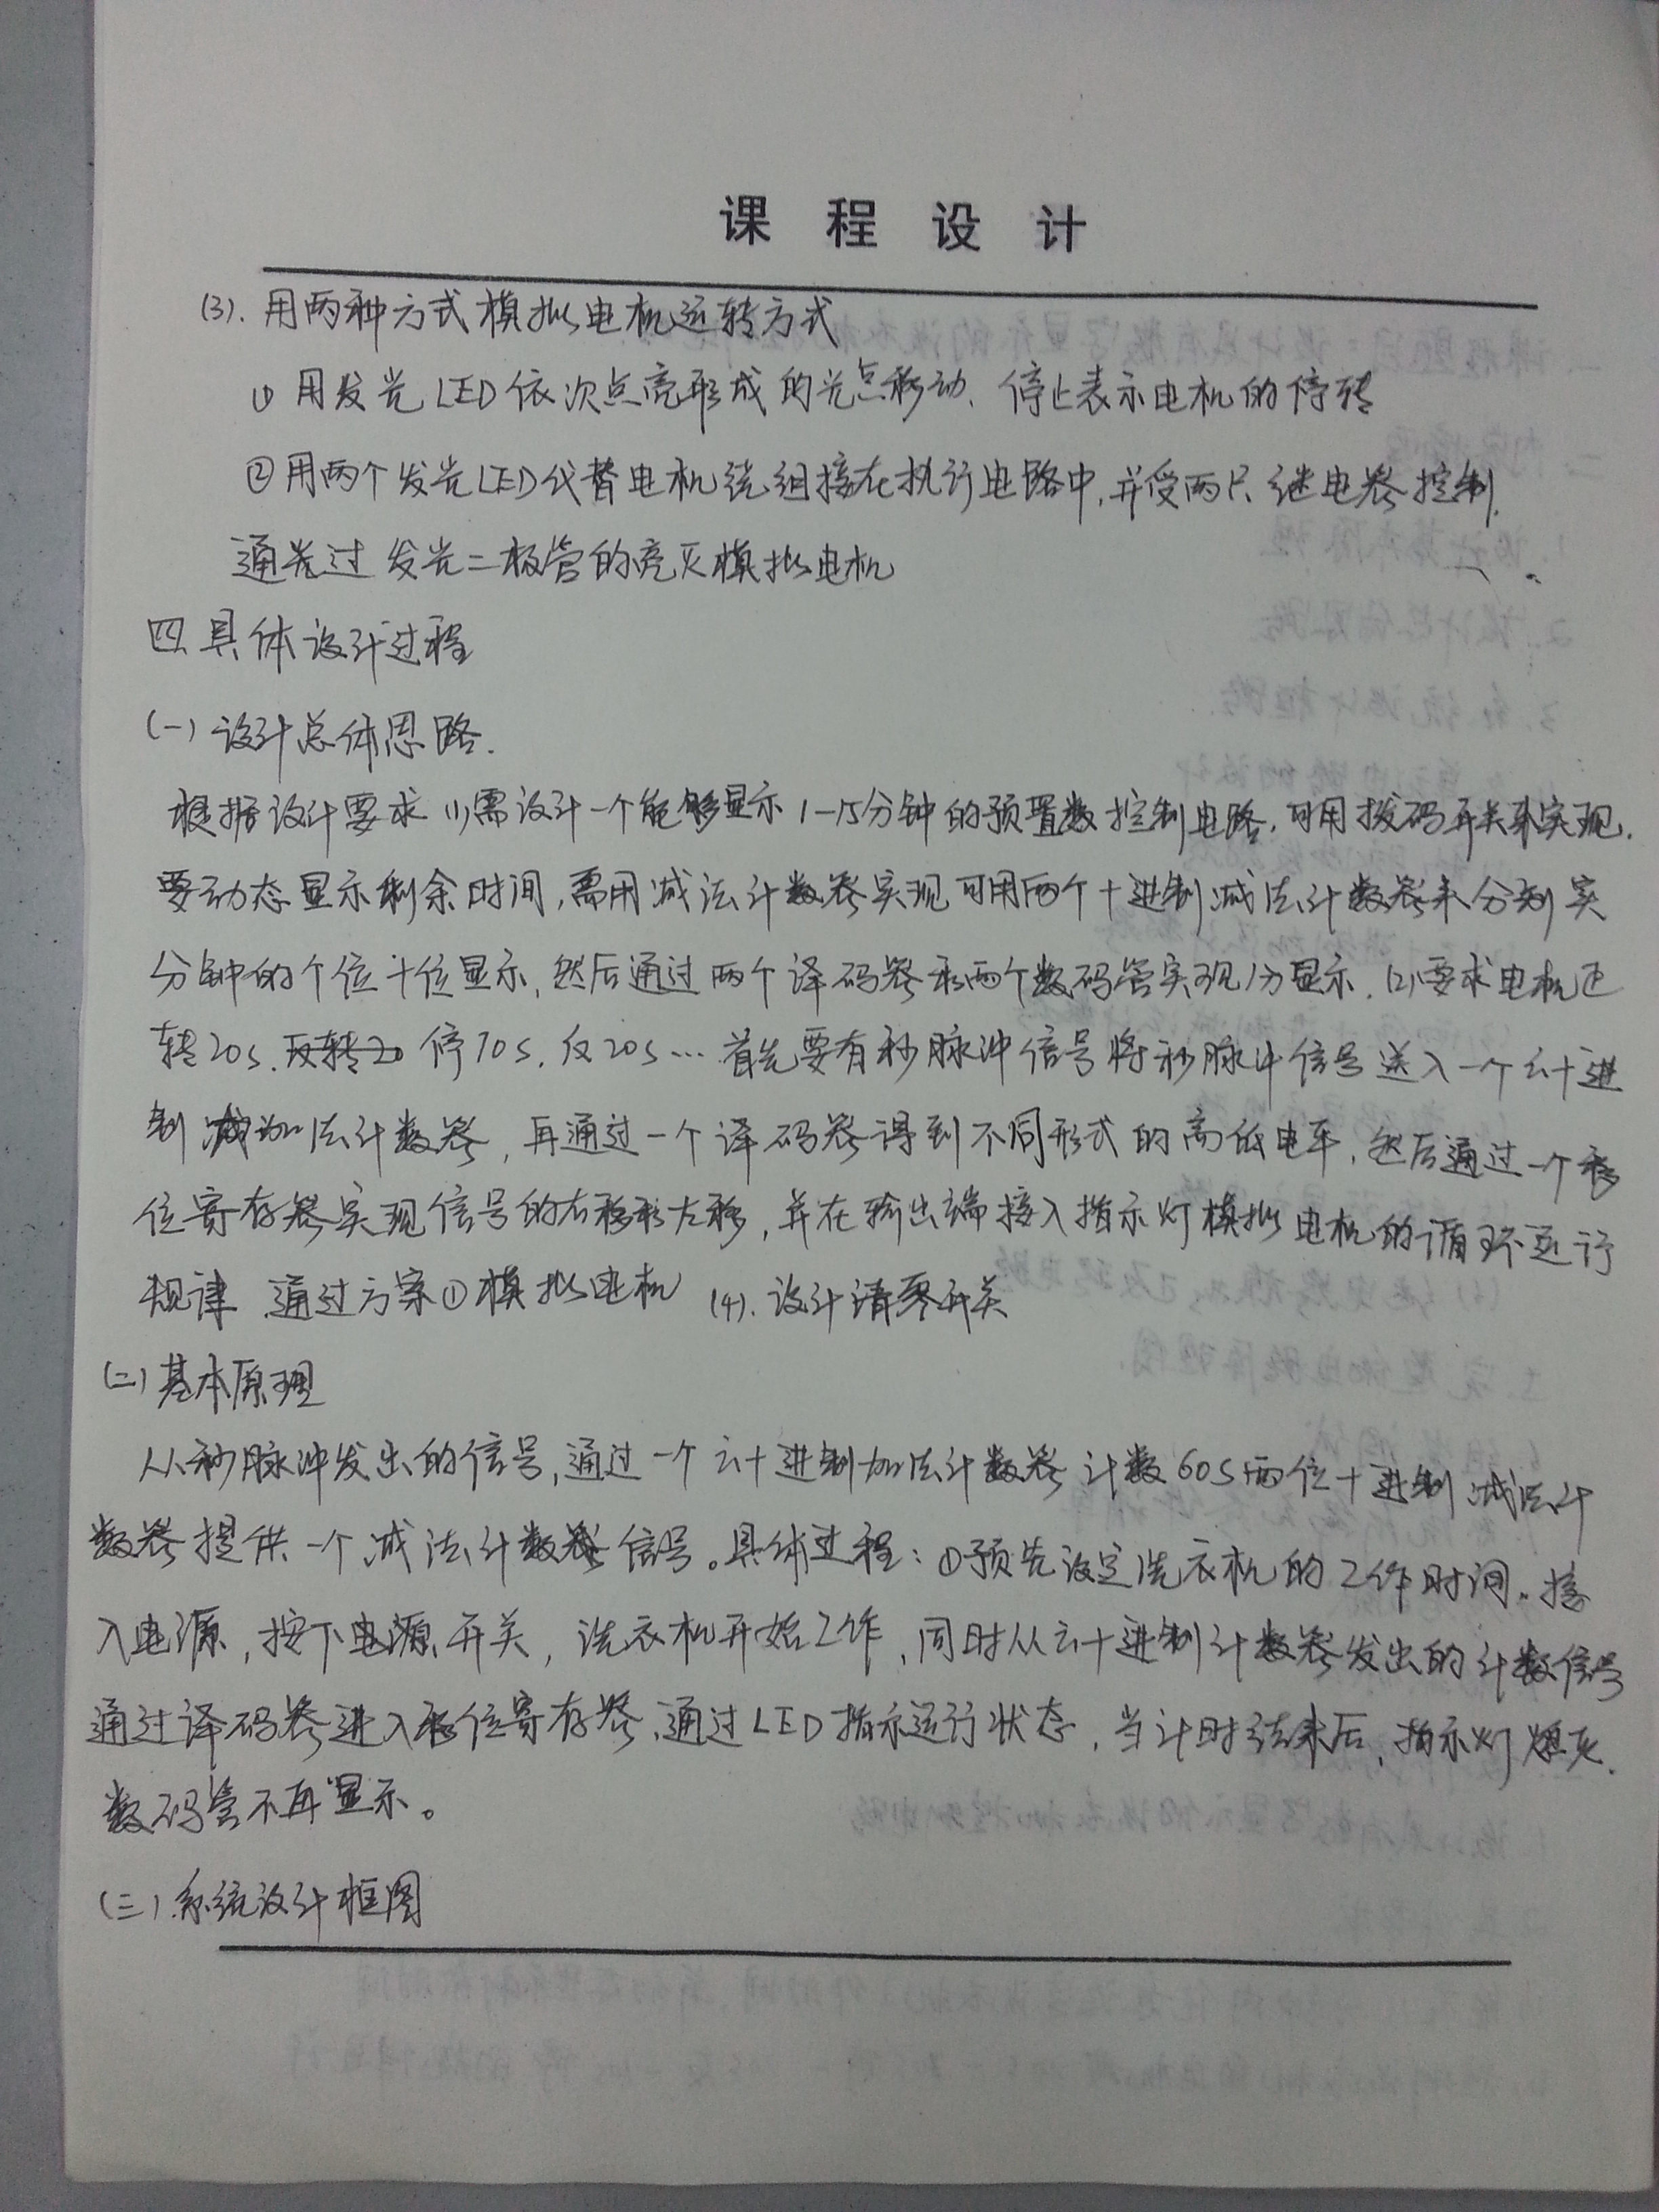 课程设计
(3).用两种方式模拟电机运转方式
① 用发光LED依次点亮形成的光点移动、停止表示电机的停转
②用两个发光LED代替电机绕组接在执行电路中,并受两只继电器控制.
通过发光二极管的亮灭模拟电机
四 具体设计过程
(一)设计总体思路.
根据设计要求(1)需设计一个能够显示1—15分钟的预置数控制电路,可用拨码开关来实现.
要动态显示剩余时间,需用减法计数器实现 可用两个十进制减法计数器来分别实
分钟的个位十位显示,然后通过两个译码器和两个数码管实现1分显示.(2)要求电机正
转20s.反转20 停10s.反20s…首先要有秒脉冲信号将秒脉冲信号送入一个六十进
制加法计数器,再通过一个译码器得到不同形式的高低电平,然后通过一个移
位寄存器实现信号的右移和左移,并在输出端接入指示灯模拟电机的循环运行
规律.通过方案①模拟电机 (4).设计清零开关
(二)基本原理
从秒脉冲发出的信号,通过一个六十进制加法计数器计数60s两位十进制减法计
数器提供一个减法计数器信号。具体过程:①预先设定洗衣机的工作时间.接
入电源,按下电源开关,洗衣机开始工作,同时从六十进制计数器发出的计数信号
通过译码器进入移位寄存器,通过LED指示运行状态,当计时结束后,指示灯熄灭.
数码管不再显示。
(三)系统设计框图